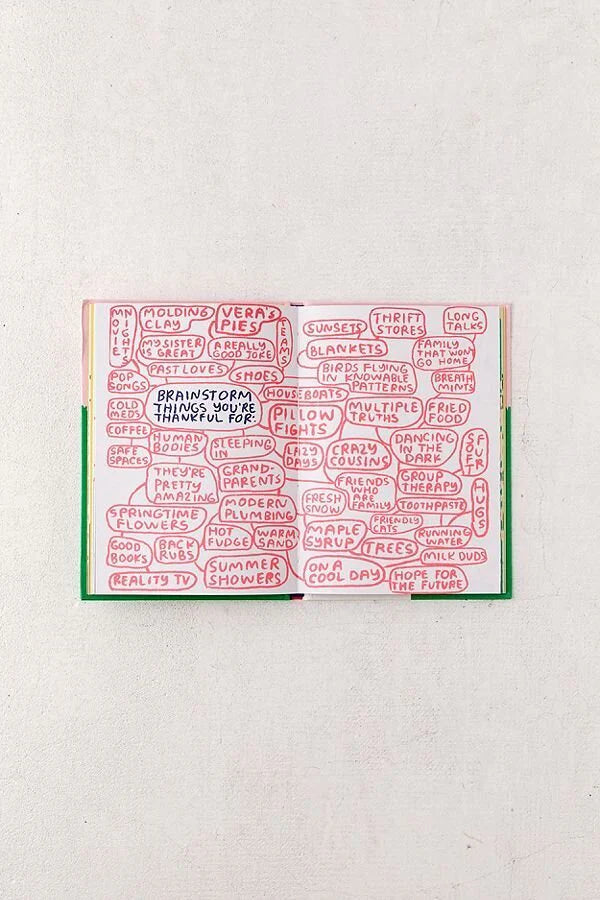 MOVIE
NIGHTS
MOLDING
CLAY
VERA'S
PIES
TEAMS
MY SISTER
IS GREAT
A REALLY
GOOD JOKE
PAST LOVES
SHOES
POP
SONGS
BRAINSTORM
THINGS YOU'RE
THANKFUL FOR:
COLD
MEDS
COFFEE
SAFE
SPACES
HUMAN
BODIES
SLEEPING
IN
THEY'RE
PRETTY
AMAZING
GRAND-
PARENTS
MODERN
PLUMBING
SPRINGTIME
FLOWERS
GOOD
BOOKS
BACK
RUBS
HOT
FUDGE
WARM
SAND
REALITY TV
SUMMER
SHOWERS
HOUSEBOATS
PILLOW
FIGHTS
LAZY
DAYS
SUNSETS
THRIFT
STORES
LONG
TALKS
BLANKETS
FAMILY
THAT WON'T
GO HOME
BIRDS FLYING
IN KNOWABLE
PATTERNS
BREATH
MINTS
MULTIPLE
TRUTHS
FRIED
FOOD
CRAZY
COUSINS
DANCING
IN THE
DARK
SOFT
FUR
FRIENDS
WHO
ARE
FAMILY
GROUP
THERAPY
FRESH
SNOW
TOOTHPASTE
HUGS
MAPLE
SYRUP
FRIENDLY
CATS
RUNNING
WATER
TREES
MILK DUDS
ON A
COOL DAY
HOPE FOR
THE FUTURE